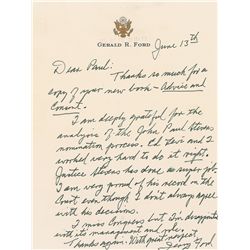 GERALD R. FORD
June 13th
Dear Paul:
Thanks so much for a
copy of your new book - Advice and
Consent.
I am deeply grateful for the
analysis of the John Paul Stevens
nomination process. Ed Levi and I
worked very hard to do it right.
Justice Stevens has done a super job.
I am very proud of his record on the
Court even though I don't always agree
with his decisions.
I miss Congress but I'm disappointed
with its management and role.
Thanks again. With great respect,
Jerry Ford